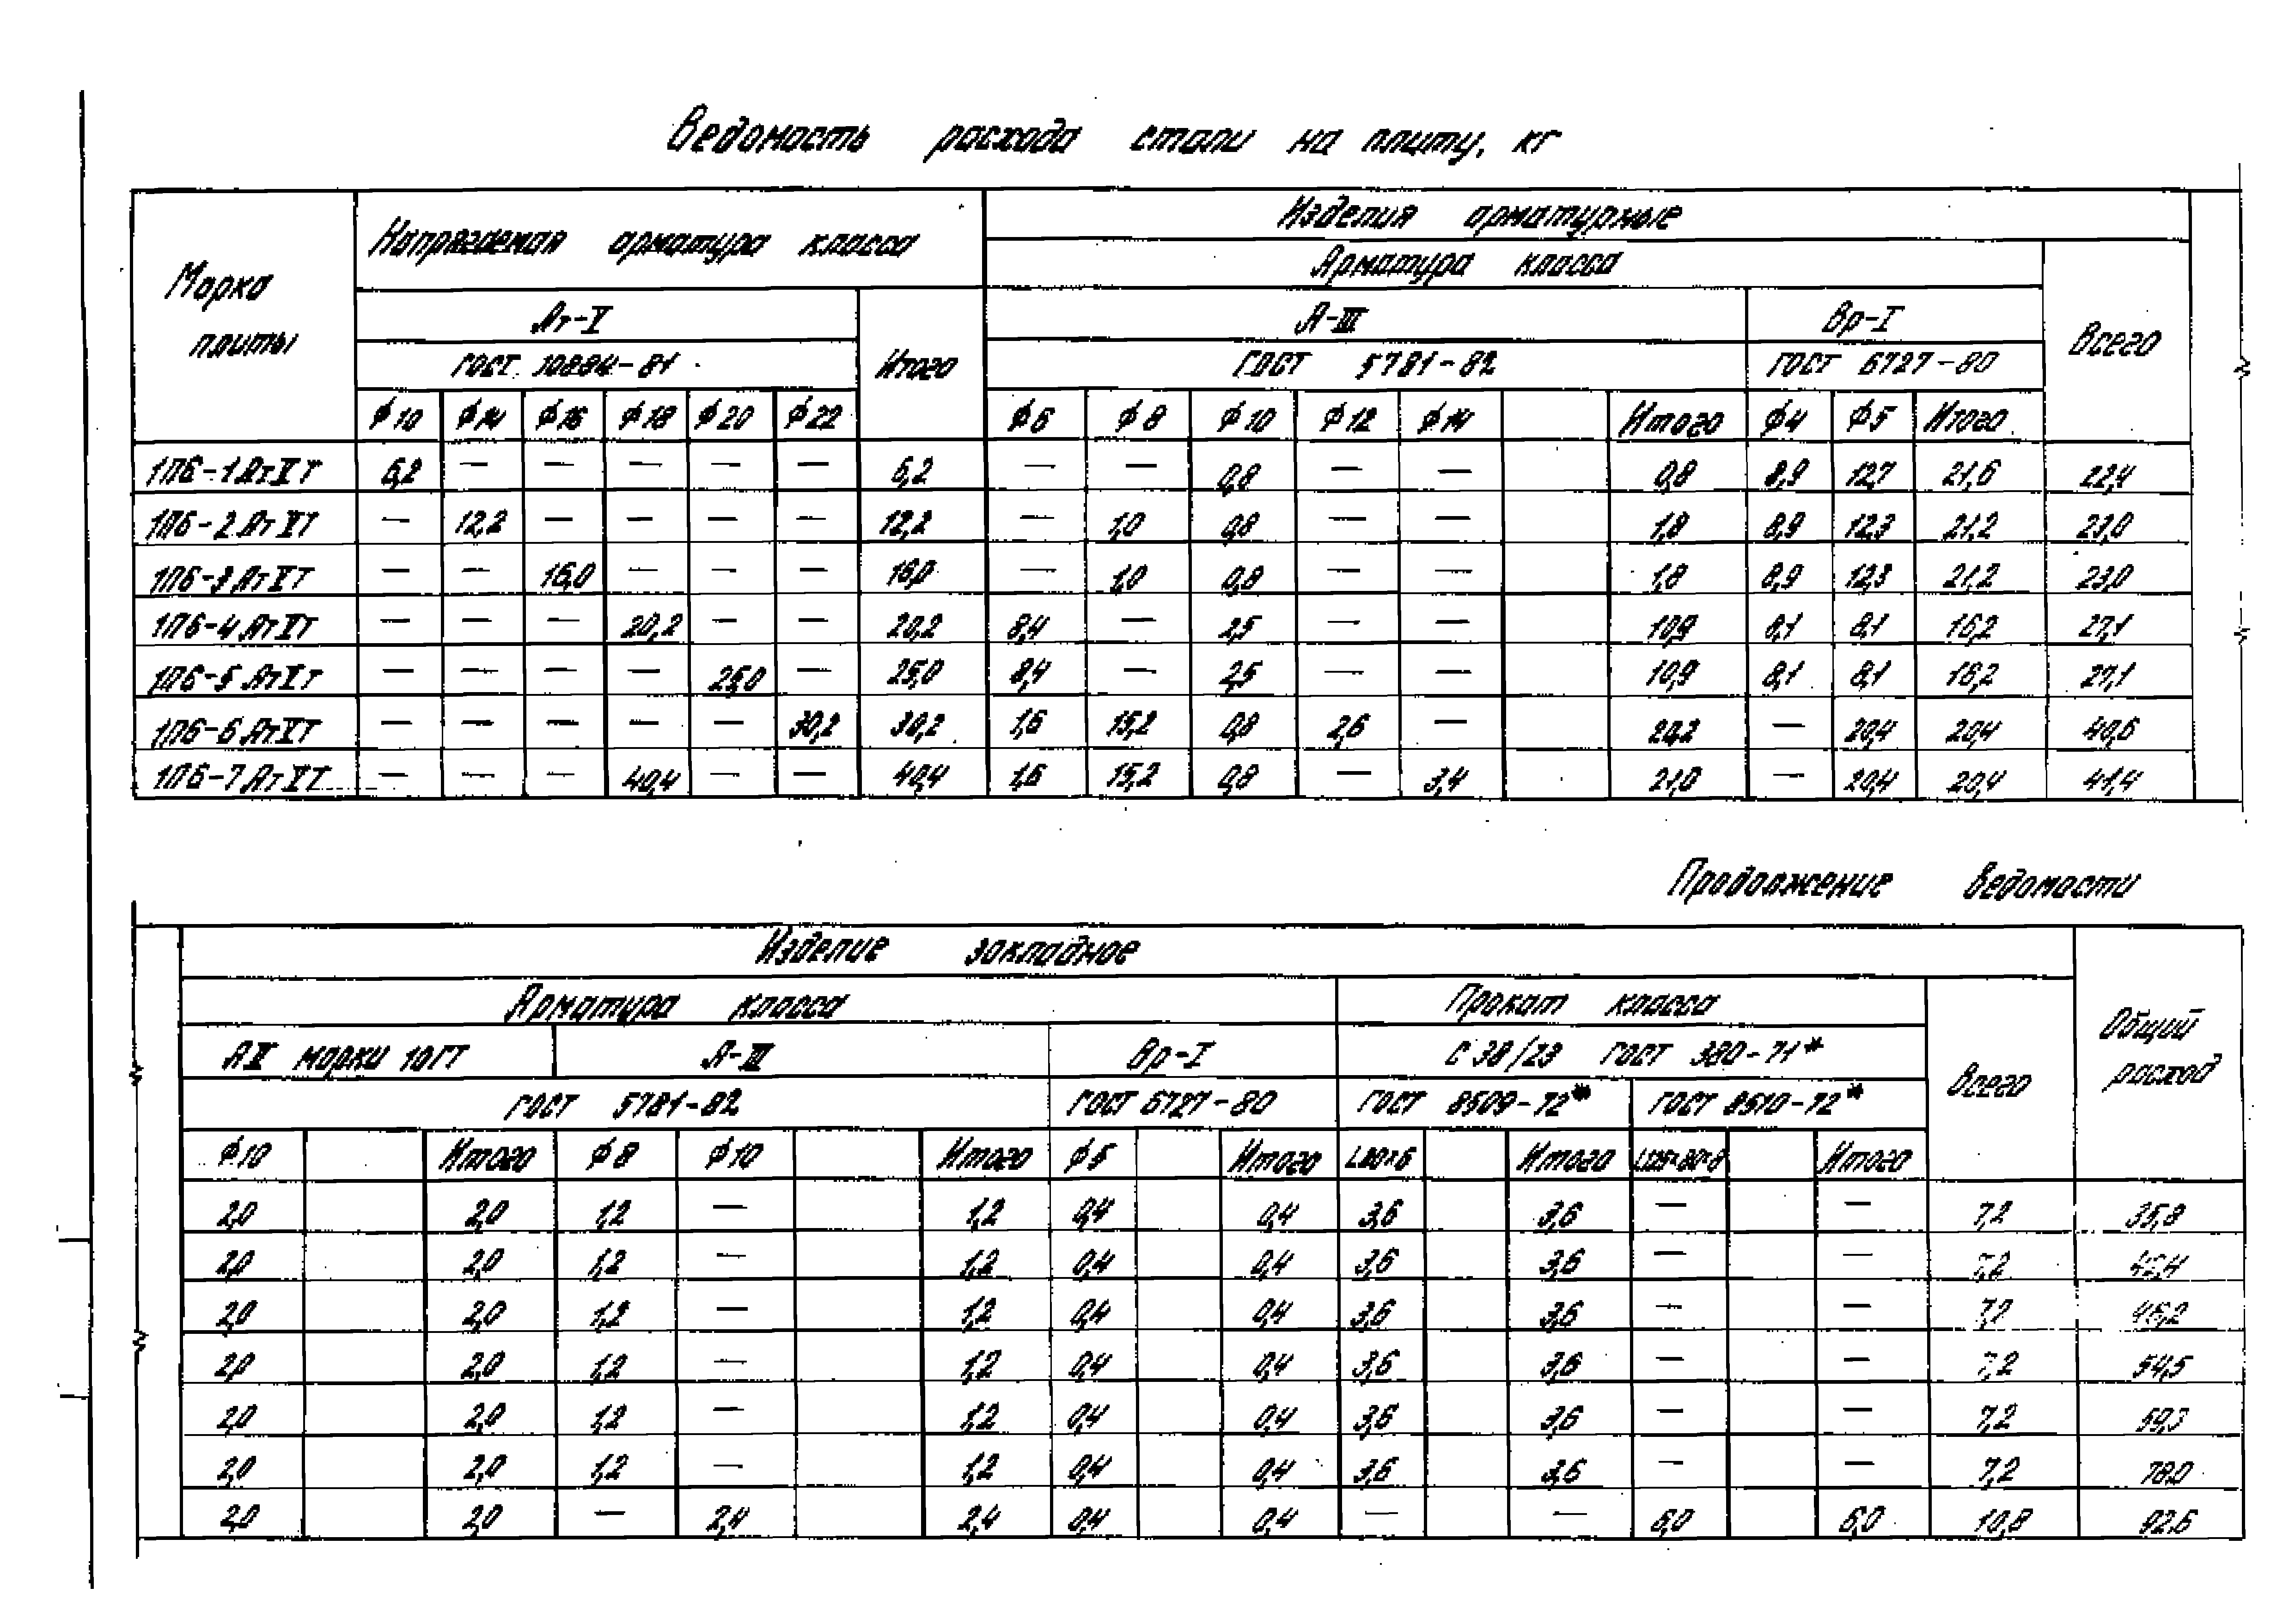 Ведомость расхода стали на плиту, кг
Марка плиты
Напрягаемая арматура класса
Изделия арматурные
Арматура класса
Ат-V
Итого
А-III
Вр-I
Всего
ГОСТ 10884-81
ГОСТ 5781-82
ГОСТ 6727-80
ϕ10 ϕ14 ϕ16 ϕ18 ϕ20 ϕ22 ϕ6 ϕ8 ϕ10 ϕ12 ϕ14 Итого ϕ4 ϕ5 Итого
1П6-1АтVТ 6,2 — — — — — 6,2 — — 0,8 — — 0,8 8,9 12,7 21,6 22,4
1П6-2АтVТ — 12,2 — — — — 12,2 — 1,0 0,8 — — 1,8 8,9 12,3 21,2 23,0
1П6-3АтVТ — — 16,0 — — — 16,0 — 1,0 0,8 — — 1,8 8,9 12,3 21,2 23,0
1П6-4АтVТ — — — 20,2 — — 20,2 8,4 — 2,5 — — 10,9 8,1 8,1 16,2 27,1
1П6-5АтVТ — — — — 25,0 — 25,0 8,4 — 2,5 — — 10,9 8,1 8,1 16,2 27,1
1П6-6АтVТ — — — — — 30,2 30,2 1,6 15,2 0,8 2,6 — 20,2 — 20,4 20,4 40,6
1П6-7АтVТ — — — 40,4 — — 40,4 1,6 15,2 0,8 — 3,4 21,0 — 20,4 20,4 41,4
Продолжение ведомости
Изделие закладное
Общий расход
Арматура класса
Прокат класса
Всего
АII марки 10ГТ
А-III
Вр-I
С38/23 ГОСТ 380-71*
ГОСТ 5781-82
ГОСТ 6727-80
ГОСТ 8509-72*
ГОСТ 8510-72*
ϕ10 Итого ϕ8 ϕ10 Итого ϕ5 Итого L80×6 Итого L125×80×8 Итого
2,0 2,0 1,2 — 1,2 0,4 0,4 3,6 3,6 — — 7,2 35,8
2,0 2,0 1,2 — 1,2 0,4 0,4 3,6 3,6 — — 7,2 42,4
2,0 2,0 1,2 — 1,2 0,4 0,4 3,6 3,6 — — 7,2 46,2
2,0 2,0 1,2 — 1,2 0,4 0,4 3,6 3,6 — — 7,2 54,5
2,0 2,0 1,2 — 1,2 0,4 0,4 3,6 3,6 — — 7,2 59,3
2,0 2,0 1,2 — 1,2 0,4 0,4 3,6 3,6 — — 7,2 78,0
2,0 2,0 — 2,4 2,4 0,4 0,4 — — 6,0 6,0 10,8 92,6